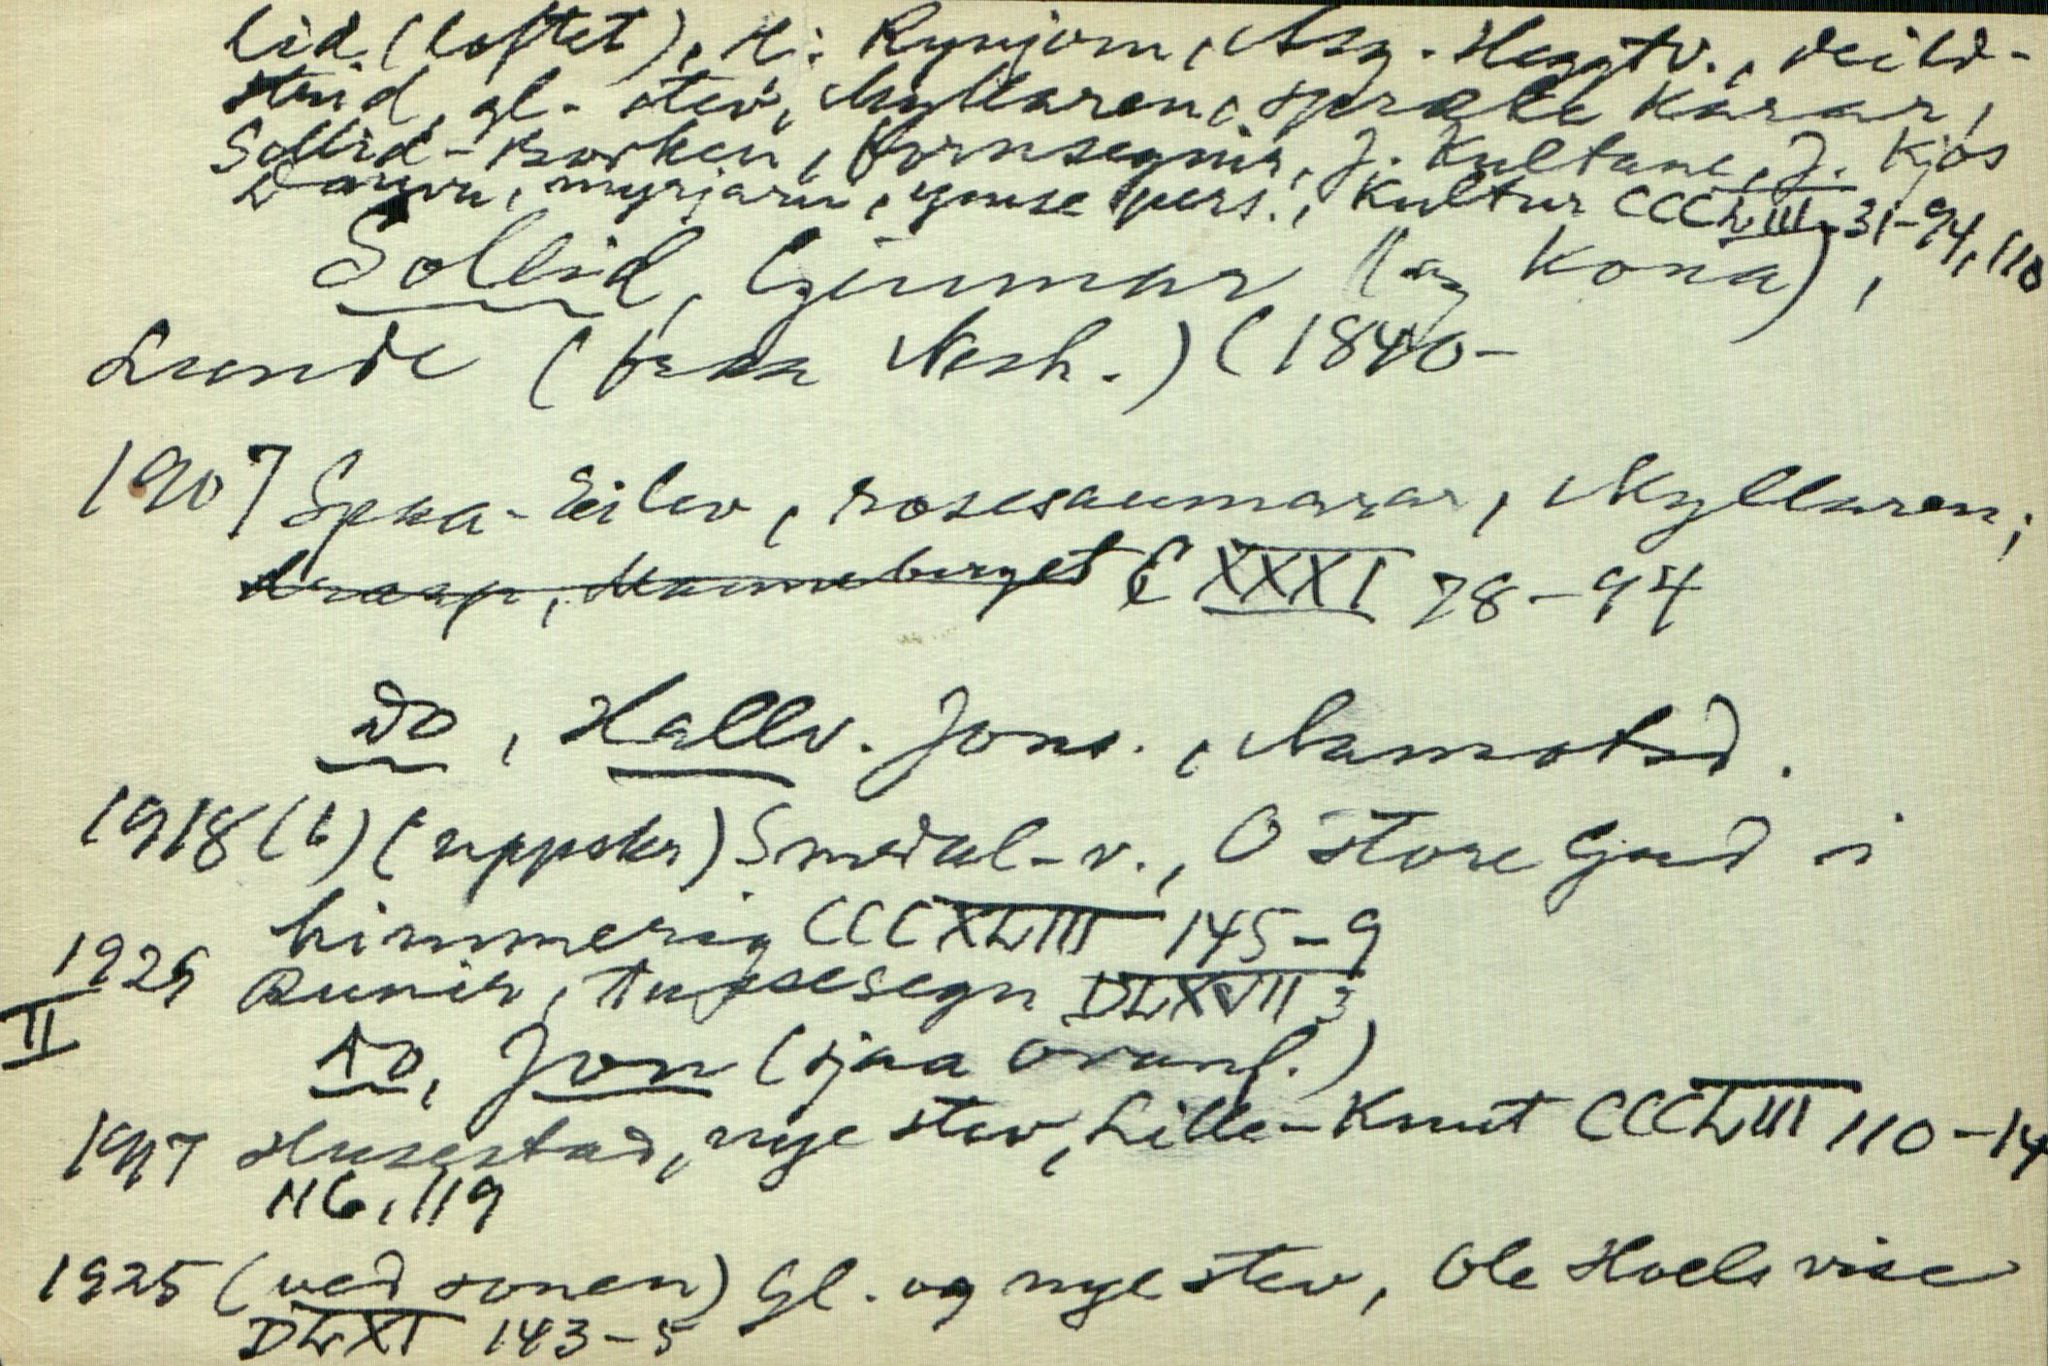 lid (loftet), H. Rynjom, Asg. Heggtv., deild-
steid, gl. stev, Myllaren, spræke karar,
Sollid-Borken, Fornsegnir, J. Kultane, J. Kjos
myrjarn, ymse pers., Kultur CCCLIII 31-94, 110
Sollid, Gunnar (og kona),
Lunde (fraa Nesh.) (1840-
1907 Spaa-Eilev, rosesaumarar, Myllaren;
CXXXI 78-94
do, Hallv. Jons., Aamotsd.
1918 (6) (uppskr) Smedal-v., O store Gud i
himmerig CCCXLIII 145-9
1925 Runer, Tussesegn DLXVII 3
II
do, Jon (sjaa ovanf.)
1917 Husestad, nye stev, Lille-Knut CCCLIII 110-14
116, 119
1925 (ved sonen) Gl. og nye stev, Ole Hoels vise
DLXI 143-5